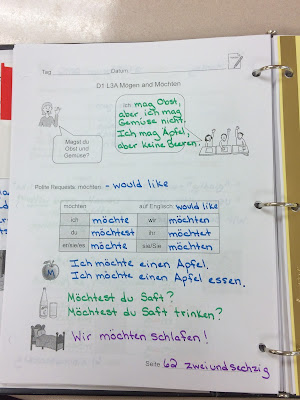 Tag Datum
D1 L3A Mögen and Möchten
Magst du
Obst und
Gemüse?
Ich mag Obst,
aber ich mag
Gemüse nicht.
Ich mag Äpfel,
aber keine Beeren.
Polite Requests: möchten - would like
möchten auf Englisch would like
ich möchte wir möchten
du möchtest ihr möchtet
er/sie/es möchte sie/Sie möchten
M
Ich möchte einen Apfel.
Ich möchte einen Apfel essen.
Möchtest du Saft?
Möchtest du Saft trinken?
Wir möchten schlafen!
Seite 62 zweiundsechzig